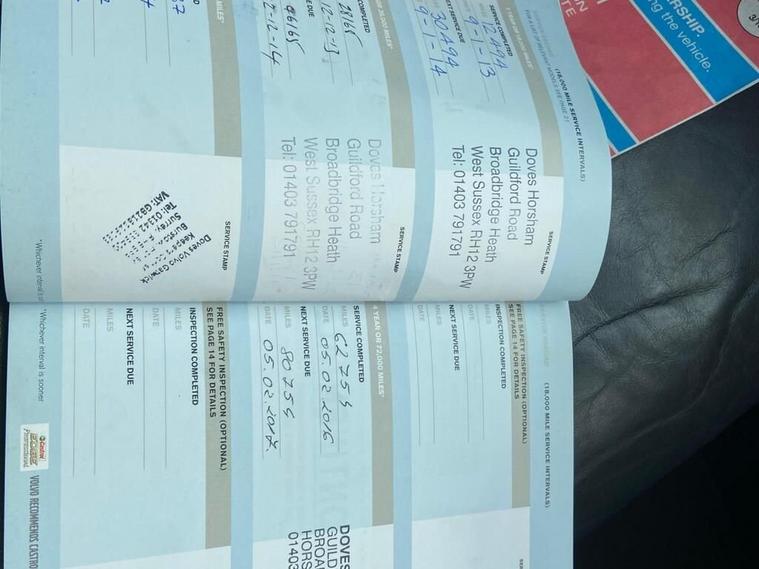 (18,000 MILE SERVICE INTERVALS)
SERVICE COMPLETED
12494
9-1-13
NEXT SERVICE DUE
30494
9-1-14
SERVICE STAMP
Doves Horsham
Guildford Road
Broadbridge Heath
West Sussex RH12 3PW
Tel: 01403 791791
COMPLETED
28165
12-12-13
DUE
2-12-14
SERVICE STAMP
Doves Horsham
Guildford Road
Broadbridge Heath
West Sussex RH12 3PW
Tel: 01403 791791
MILES*
SERVICE STAMP
Doves Volvo Gatwick
Surrey
*Whichever interval is
(18,000 MILE SERVICE INTERVALS)
FREE SAFETY INSPECTION (OPTIONAL)
SEE PAGE 14 FOR DETAILS
INSPECTION COMPLETED
MILES
DATE
NEXT SERVICE DUE
MILES
DATE
YEAR OR 72,000 MILES*
SERVICE COMPLETED
MILES 62755
DATE 05.02.2016
NEXT SERVICE DUE
MILES 80755
DATE 05.02.2017
DOVES
GUILD
BROA
HORS
01403
FREE SAFETY INSPECTION (OPTIONAL)
SEE PAGE 14 FOR DETAILS
INSPECTION COMPLETED
MILES
DATE
NEXT SERVICE DUE
MILES
DATE
*Whichever interval is sooner
Castrol
EDGE
Professional
VOLVO RECOMMENDS CASTRO
ERSHIP
ng the vehicle.